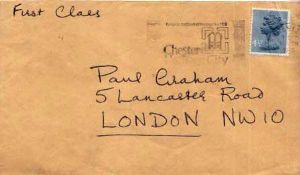 First Class
Chester
City
Paul Graham
5 Lancaster Road
LONDON NW10